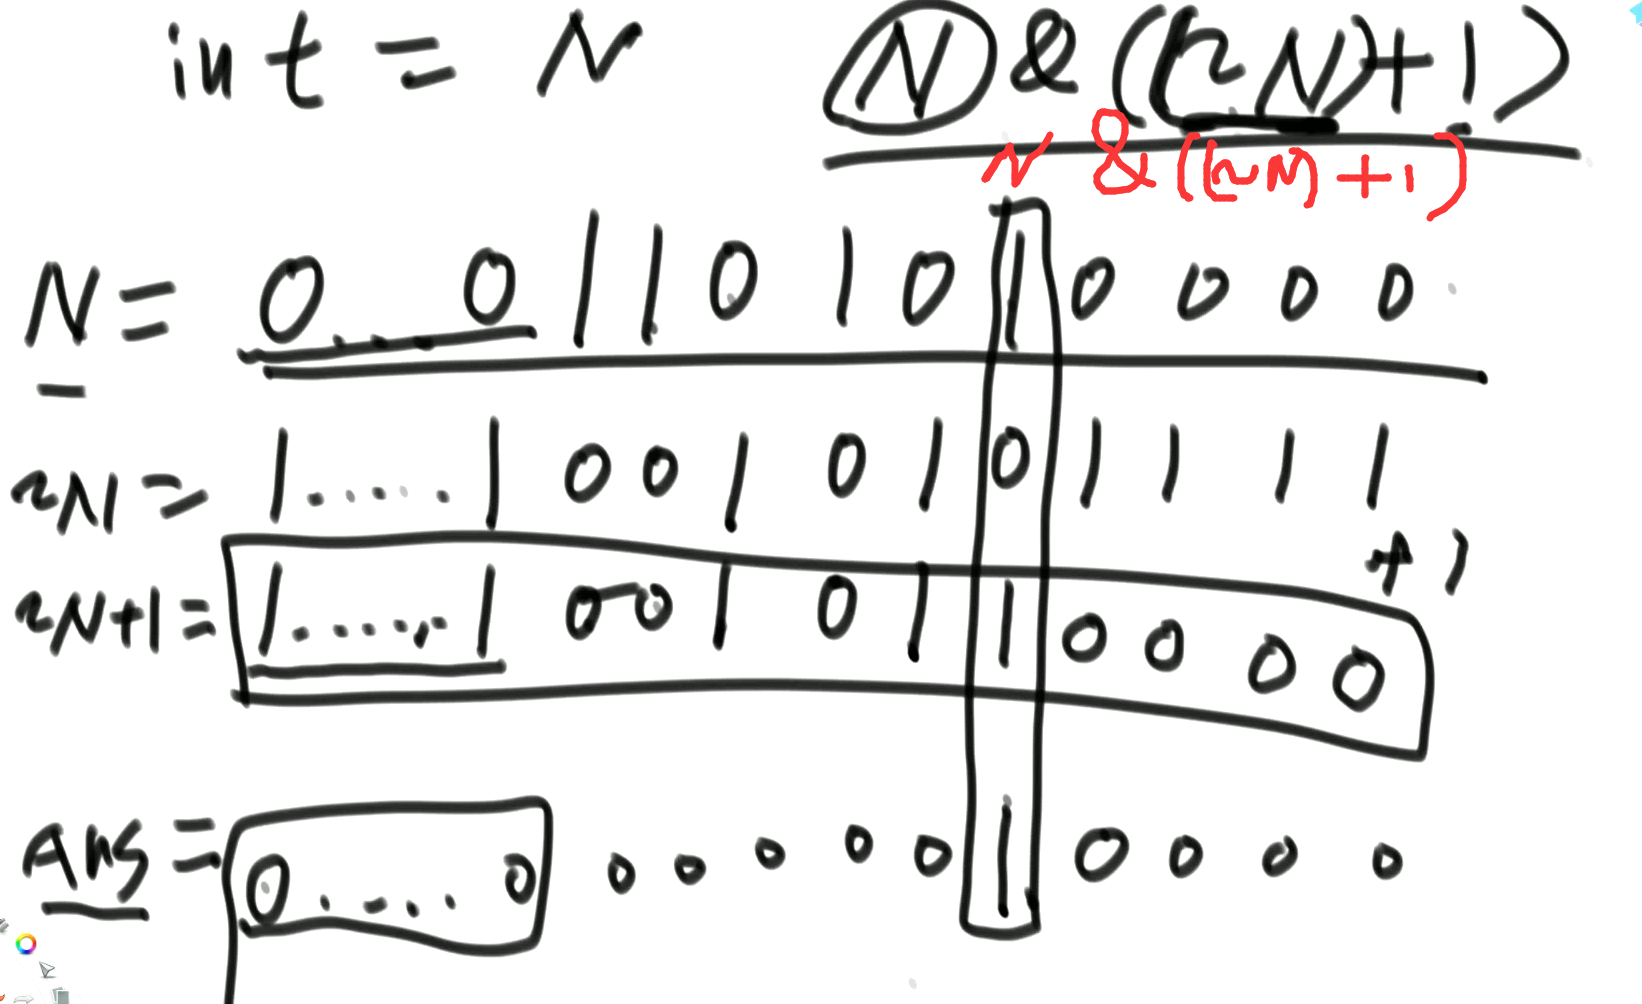 int = N N & ((~N)+1)
N & ((~N)+1)
N = 0....0 1 1 0 1 0 1 0 0 0 0
~N = 1.....1 0 0 1 0 1 0 1 1 1 1
+1
~N+1 = 1.....1 0 0 1 0 1 1 0 0 0 0
Ans = 0....0 0 0 0 0 0 1 0 0 0 0